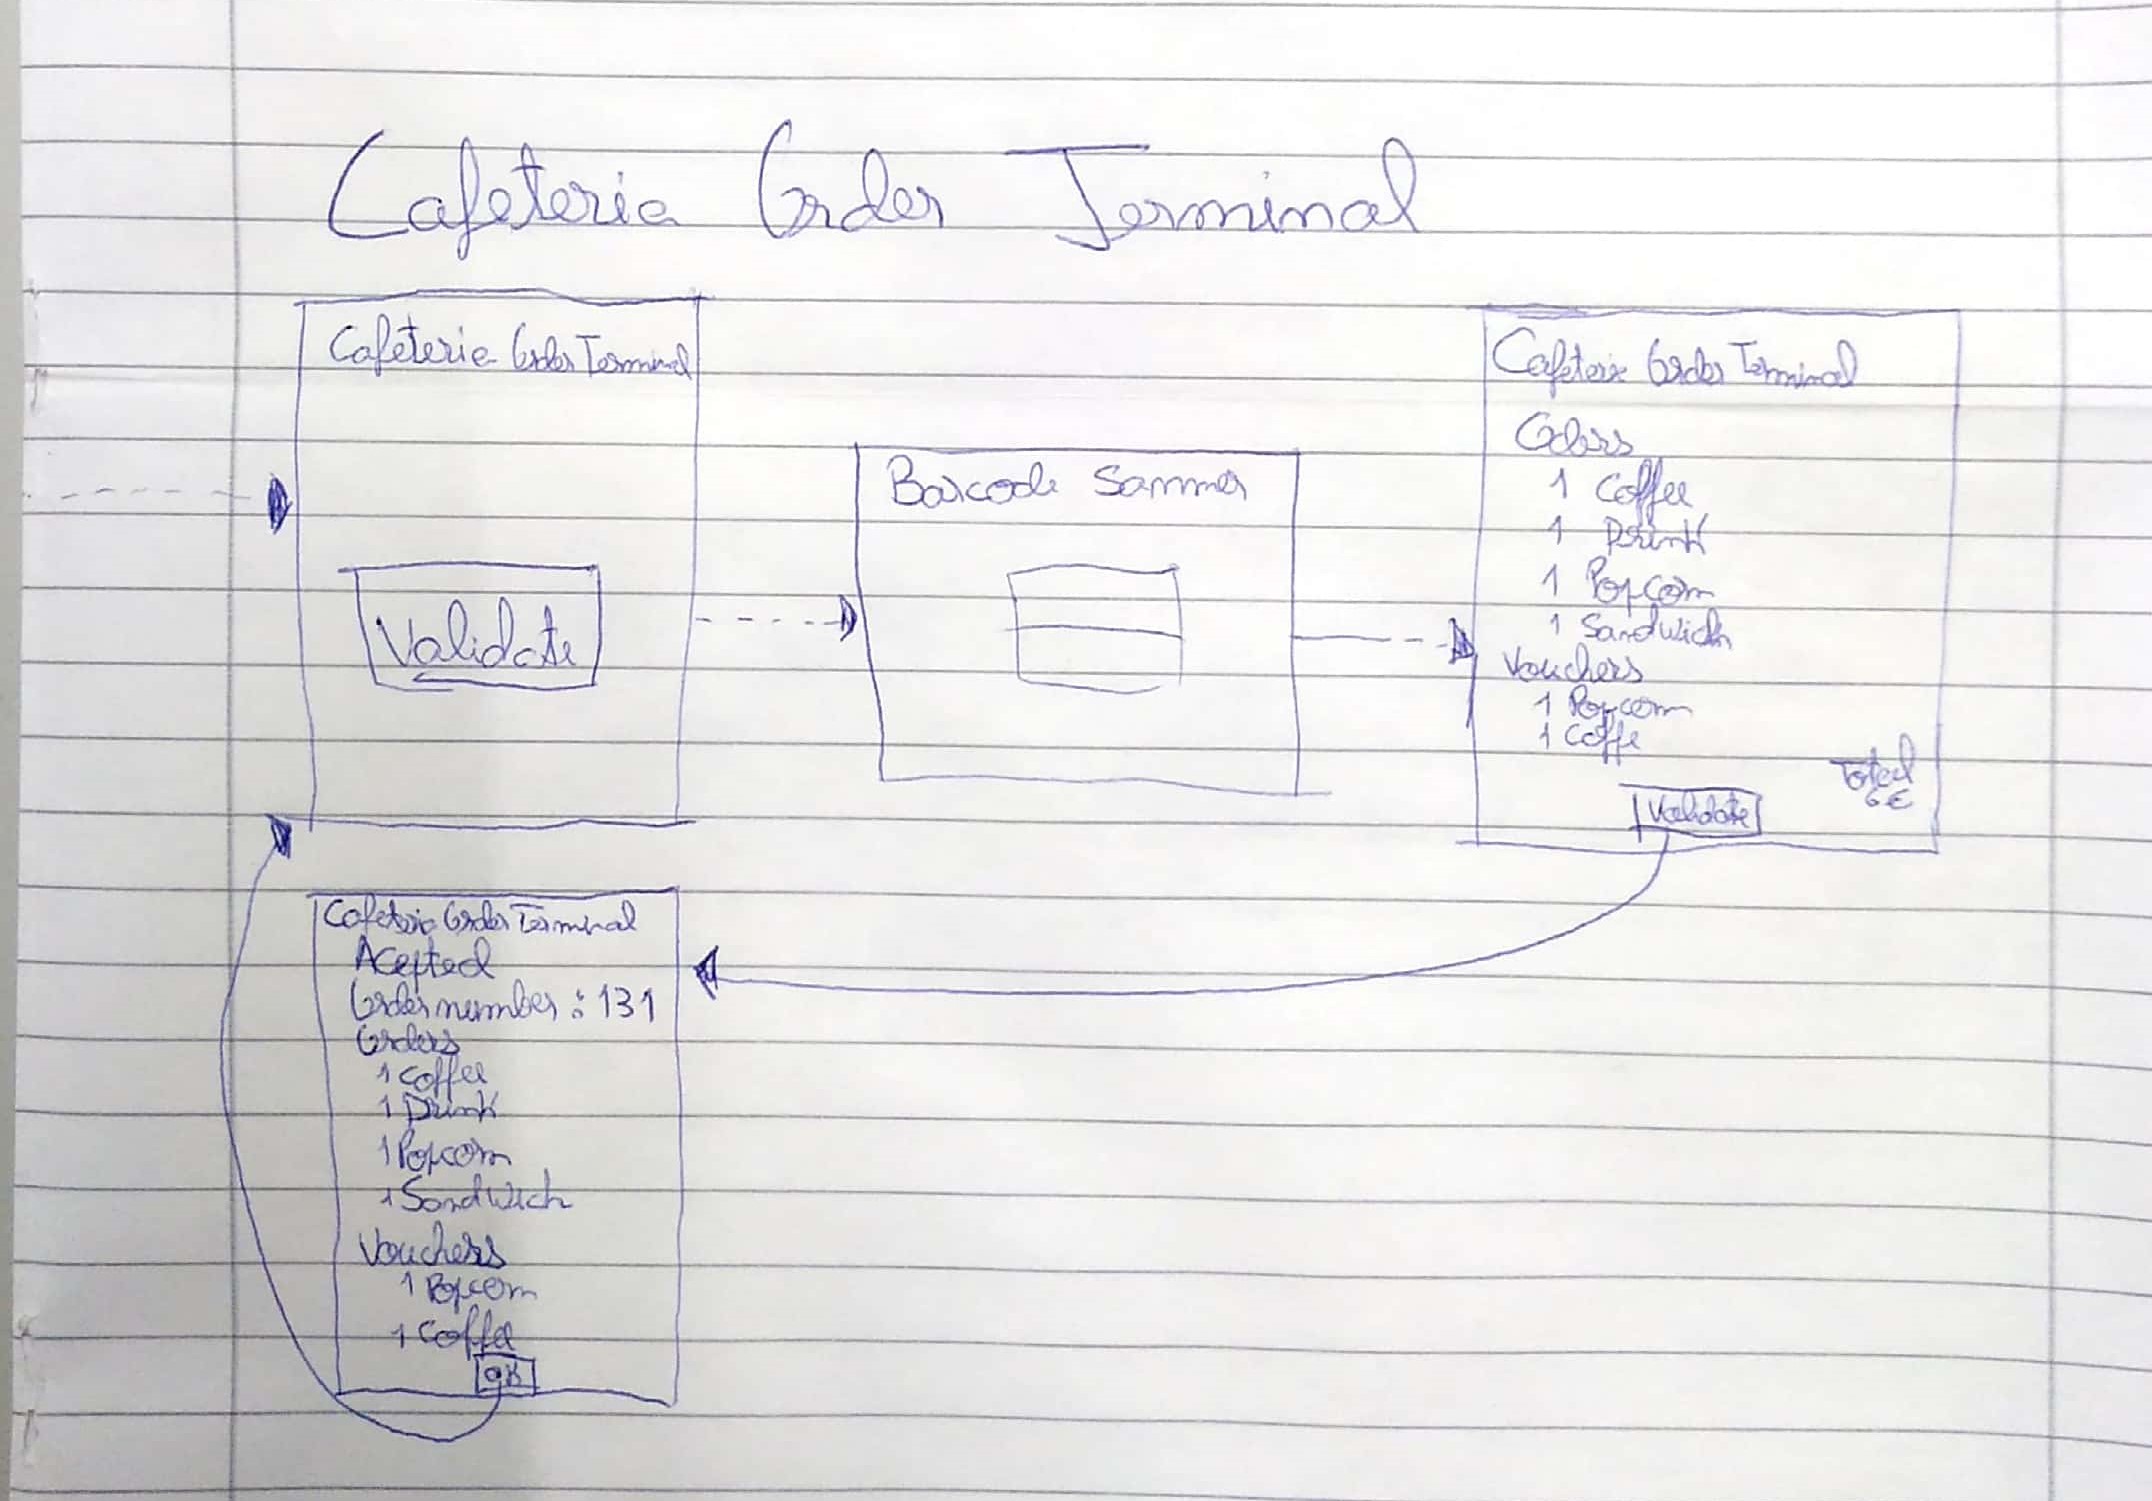 Cafeteria Order Terminal
Cafeteria Order Terminal
Validate
Barcode Sanner
Cafeteria Order Terminal
Orders
1 Coffee
1 Drink
1 Popcorn
1 Sandwich
Vouchers
1 Popcorn
1 Coffe
Total
6€
Validate
Cafeteria Order Terminal
Acepted
Order number : 131
Orders
1 Coffee
1 Drink
1 Popcorn
1 Sandwich
Vouchers
1 Popcorn
1 Coffee
OK